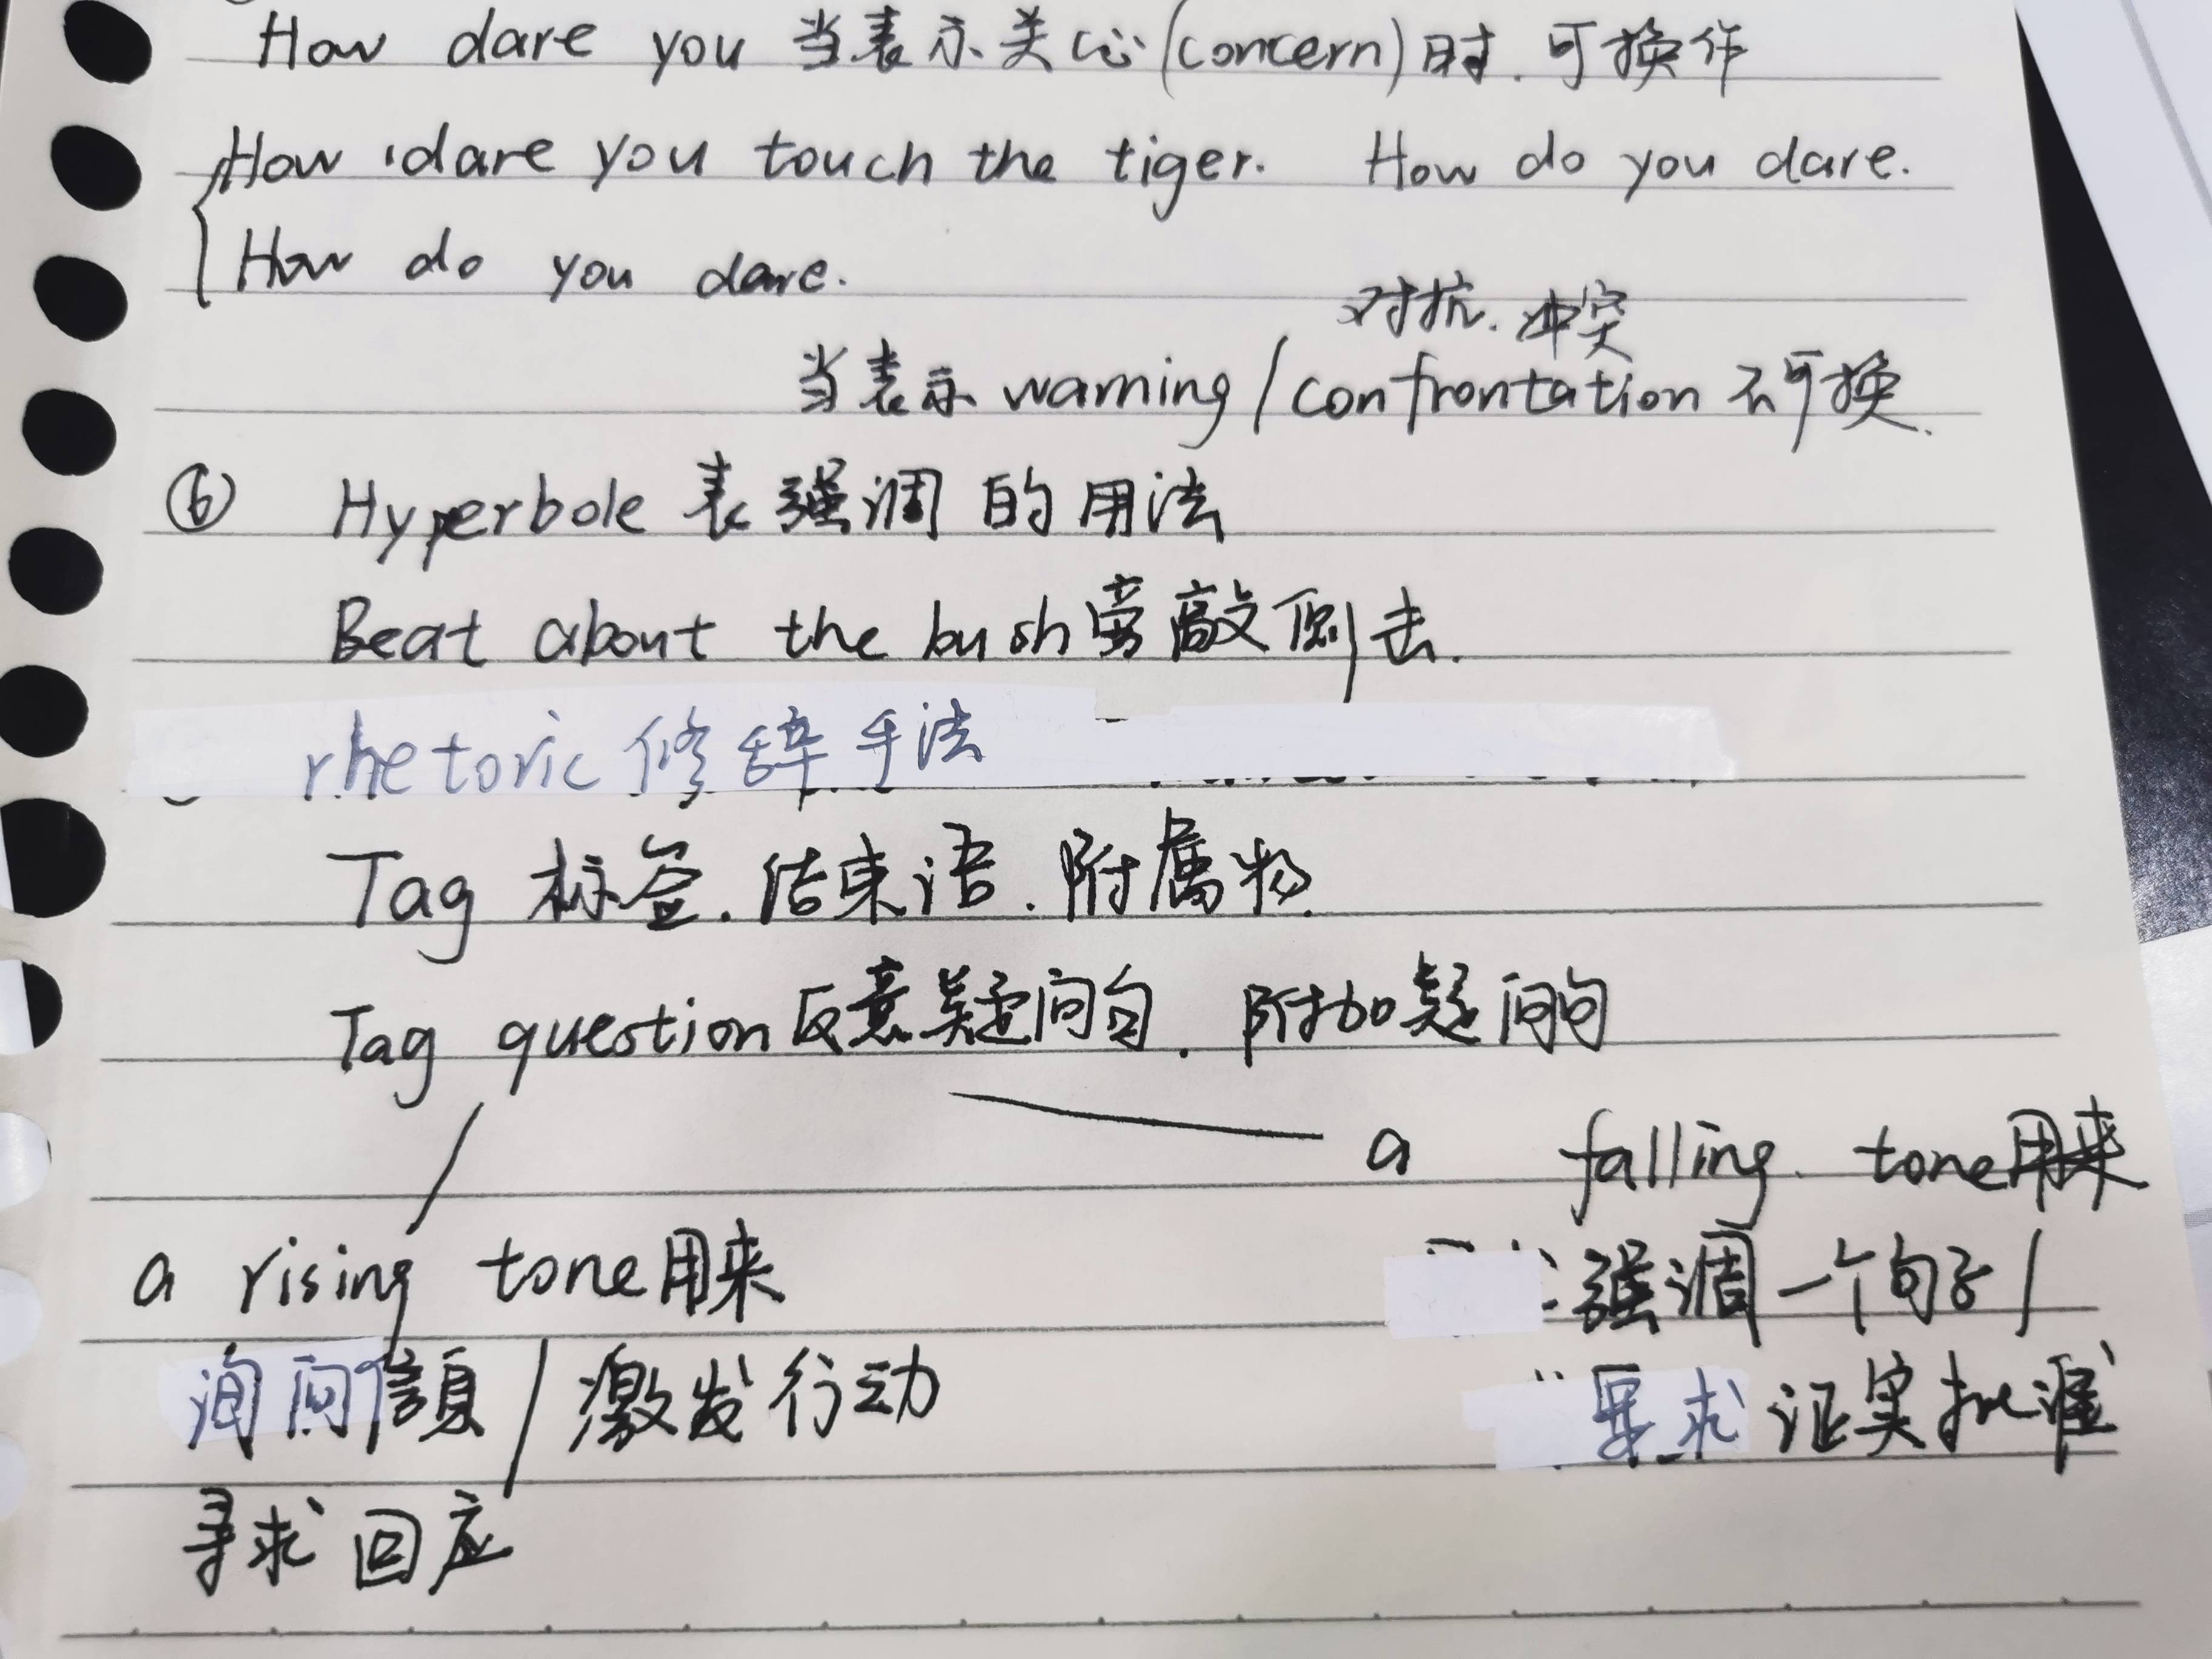 How dare you 当表示关心(concern)时.可换作
How dare you touch the tiger. How do you dare.
How do you dare.
对抗.冲突
当表示 warning/confrontation 不可换.
⑥ Hyperbole 表强调的用法
Beat about the bush 旁敲侧击.
rhetoric 修辞手法
Tag 标签.结束语.附属物.
Tag question 反意疑问句.附加疑问句
a falling tone用来
a rising tone用来
强调一个句子/
询问信息/激发行动
要求证实批准
寻求回应